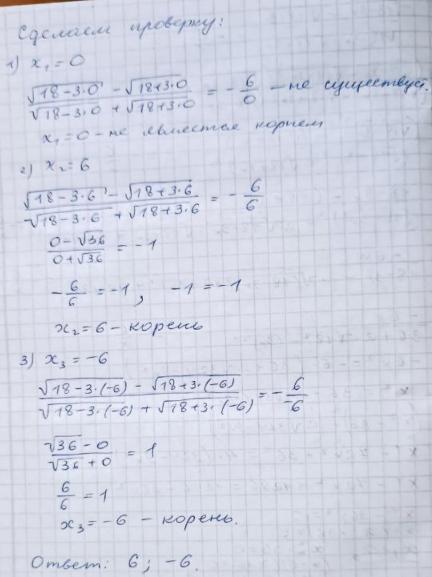 Сделаем проверку:
1) x₁ = 0
(√(18-3·0) - √(18+3·0)) / (√(18-3·0) + √(18+3·0)) = - 6/0 - не существует.
x₁ = 0 - не является корнем
2) x₂ = 6
(√(18-3·6) - √(18+3·6)) / (√(18-3·6) + √(18+3·6)) = - 6/6
(0-√36) / (0+√36) = -1
- 6/6 = -1, -1 = -1
x₂ = 6 - корень
3) x₃ = -6
(√(18-3·(-6)) - √(18+3·(-6))) / (√(18-3·(-6)) + √(18+3·(-6))) = - 6/-6
(√36 - 0) / (√36 + 0) = 1
6/6 = 1
x₃ = -6 - корень.
Ответ: 6; -6.